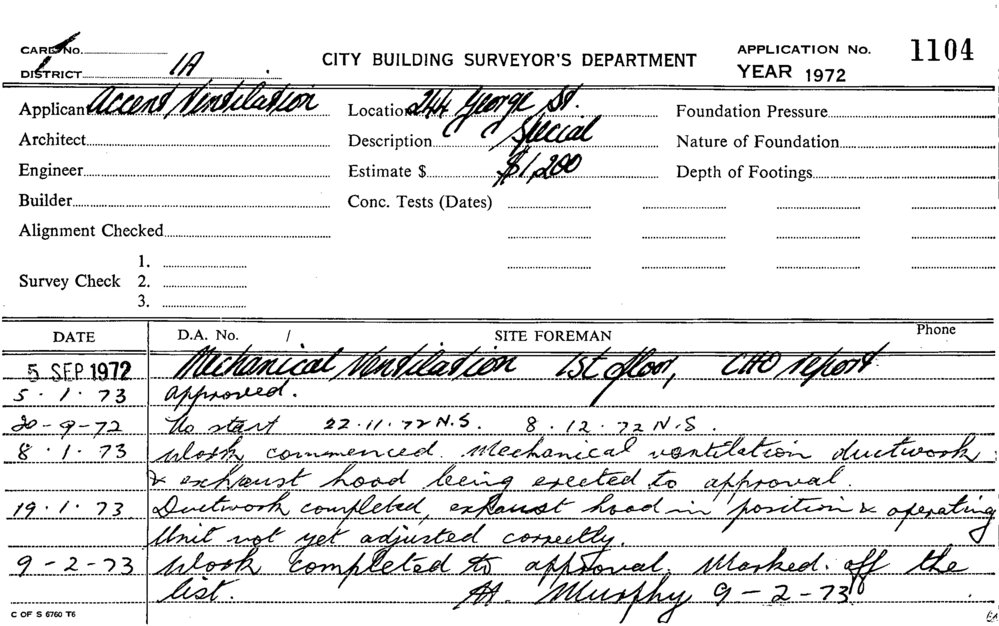 CARD No.
1
DISTRICT 1A
CITY BUILDING SURVEYOR'S DEPARTMENT
APPLICATION No. 1104
YEAR 1972
Applicant Accent Ventilation
Location 244 George St.
Foundation Pressure
Architect
Description Special
Nature of Foundation
Engineer
Estimate $ $1,200
Depth of Footings
Builder
Conc. Tests (Dates)
Alignment Checked
1.
Survey Check 2.
3.
DATE D.A. No. / SITE FOREMAN Phone
5 SEP 1972 Mechanical Ventilation 1st floor, CHO report
5.1.73 approved.
20-9-72 No start 22.11.72 N.S. 8.12.72 N.S.
8.1.73 Work commenced. Mechanical ventilation ductwork
& exhaust hood being erected to approval.
19.1.73 Ductwork completed, exhaust hood in position & operating
Unit not yet adjusted correctly.
9-2-73 Work completed to approval. Marked off the
list. A. Murphy 9-2-73
C OF S 6760 T6